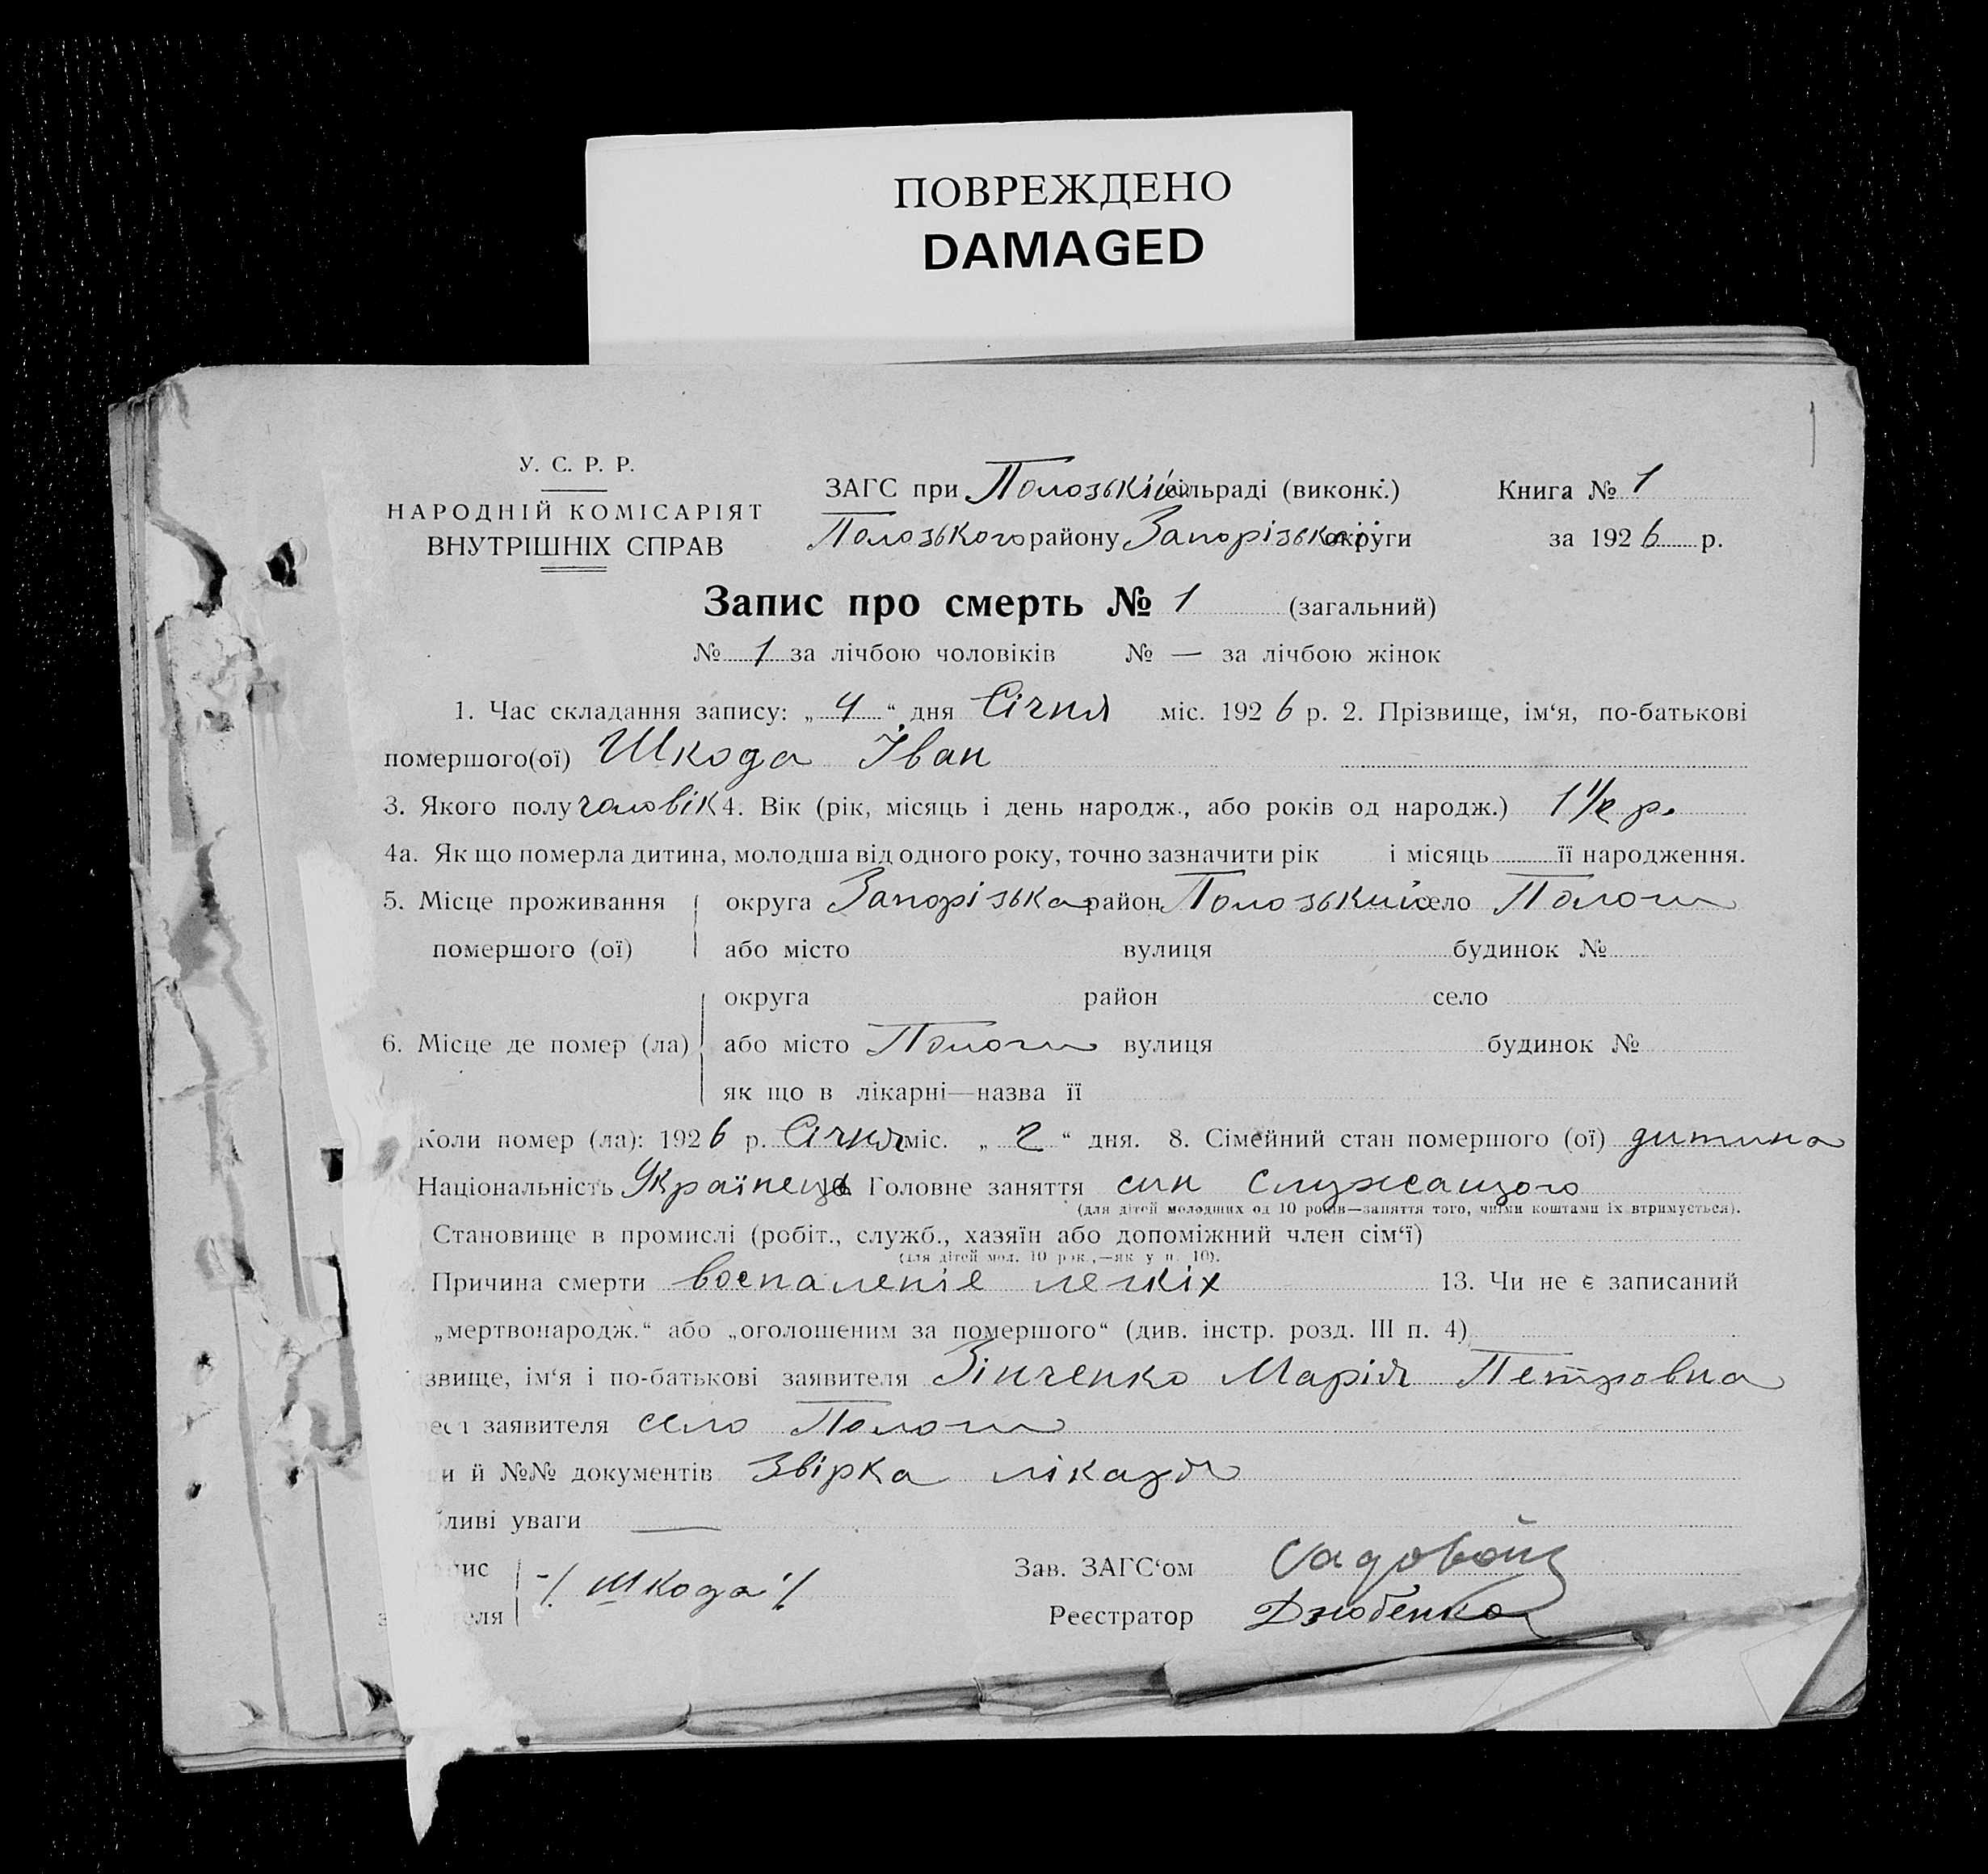 ПОВРЕЖДЕНО
DAMAGED
У. С. Р. Р.
НАРОДНІЙ КОМІСАРІЯТ
ВНУТРІШНІХ СПРАВ
ЗАГС при Полозькій сільраді (виконк.)
Полозького району Запорізької округи
Книга № 1
за 1926 р.
Запис про смерть № 1 (загальний)
№ 1 за лічбою чоловіків № — за лічбою жінок
1. Час складання запису: „4“ дня Січня міс. 1926 р. 2. Прізвище, ім‘я, по-батькові
помершого(ої) Шкода Іван
3. Якого полу чоловік 4. Вік (рік, місяць і день народж., або років од народж.) 1 1/2 р.
4а. Як що померла дитина, молодша від одного року, точно зазначити рік і місяць її народження.
5. Місце проживання округа Запорізька район Полозький село Пологи
помершого (ої) або місто вулиця будинок №
округа район село
6. Місце де помер (ла) або місто Пологи вулиця будинок №
як що в лікарні—назва її
Коли помер (ла): 1926 р. Січня міс. „2“ дня. 8. Сімейний стан помершого (ої) дитина
Національність Українець Головне заняття син служащого
(для дітей молодших од 10 років—заняття того, чиїми коштами їх втримується).
Становище в промислі (робіт., служб., хазяїн або допоміжний член сім‘ї)
(для дітей мол. 10 рок.,—як у п. 10).
Причина смерти воспаленіє легкіх 13. Чи не є записаний
„мертвонародж.“ або „оголошеним за помершого“ (див. інстр. розд. III п. 4)
звище, ім‘я і по-батькові заявителя Зінченко Марія Петровна
заявителя село Пологи
й №№ документів Звірка лікаря
ливі уваги —
пис ./. Шкода ./.
теля
Зав. ЗАГС‘ом Садовой
Реєстратор Дзюбенко